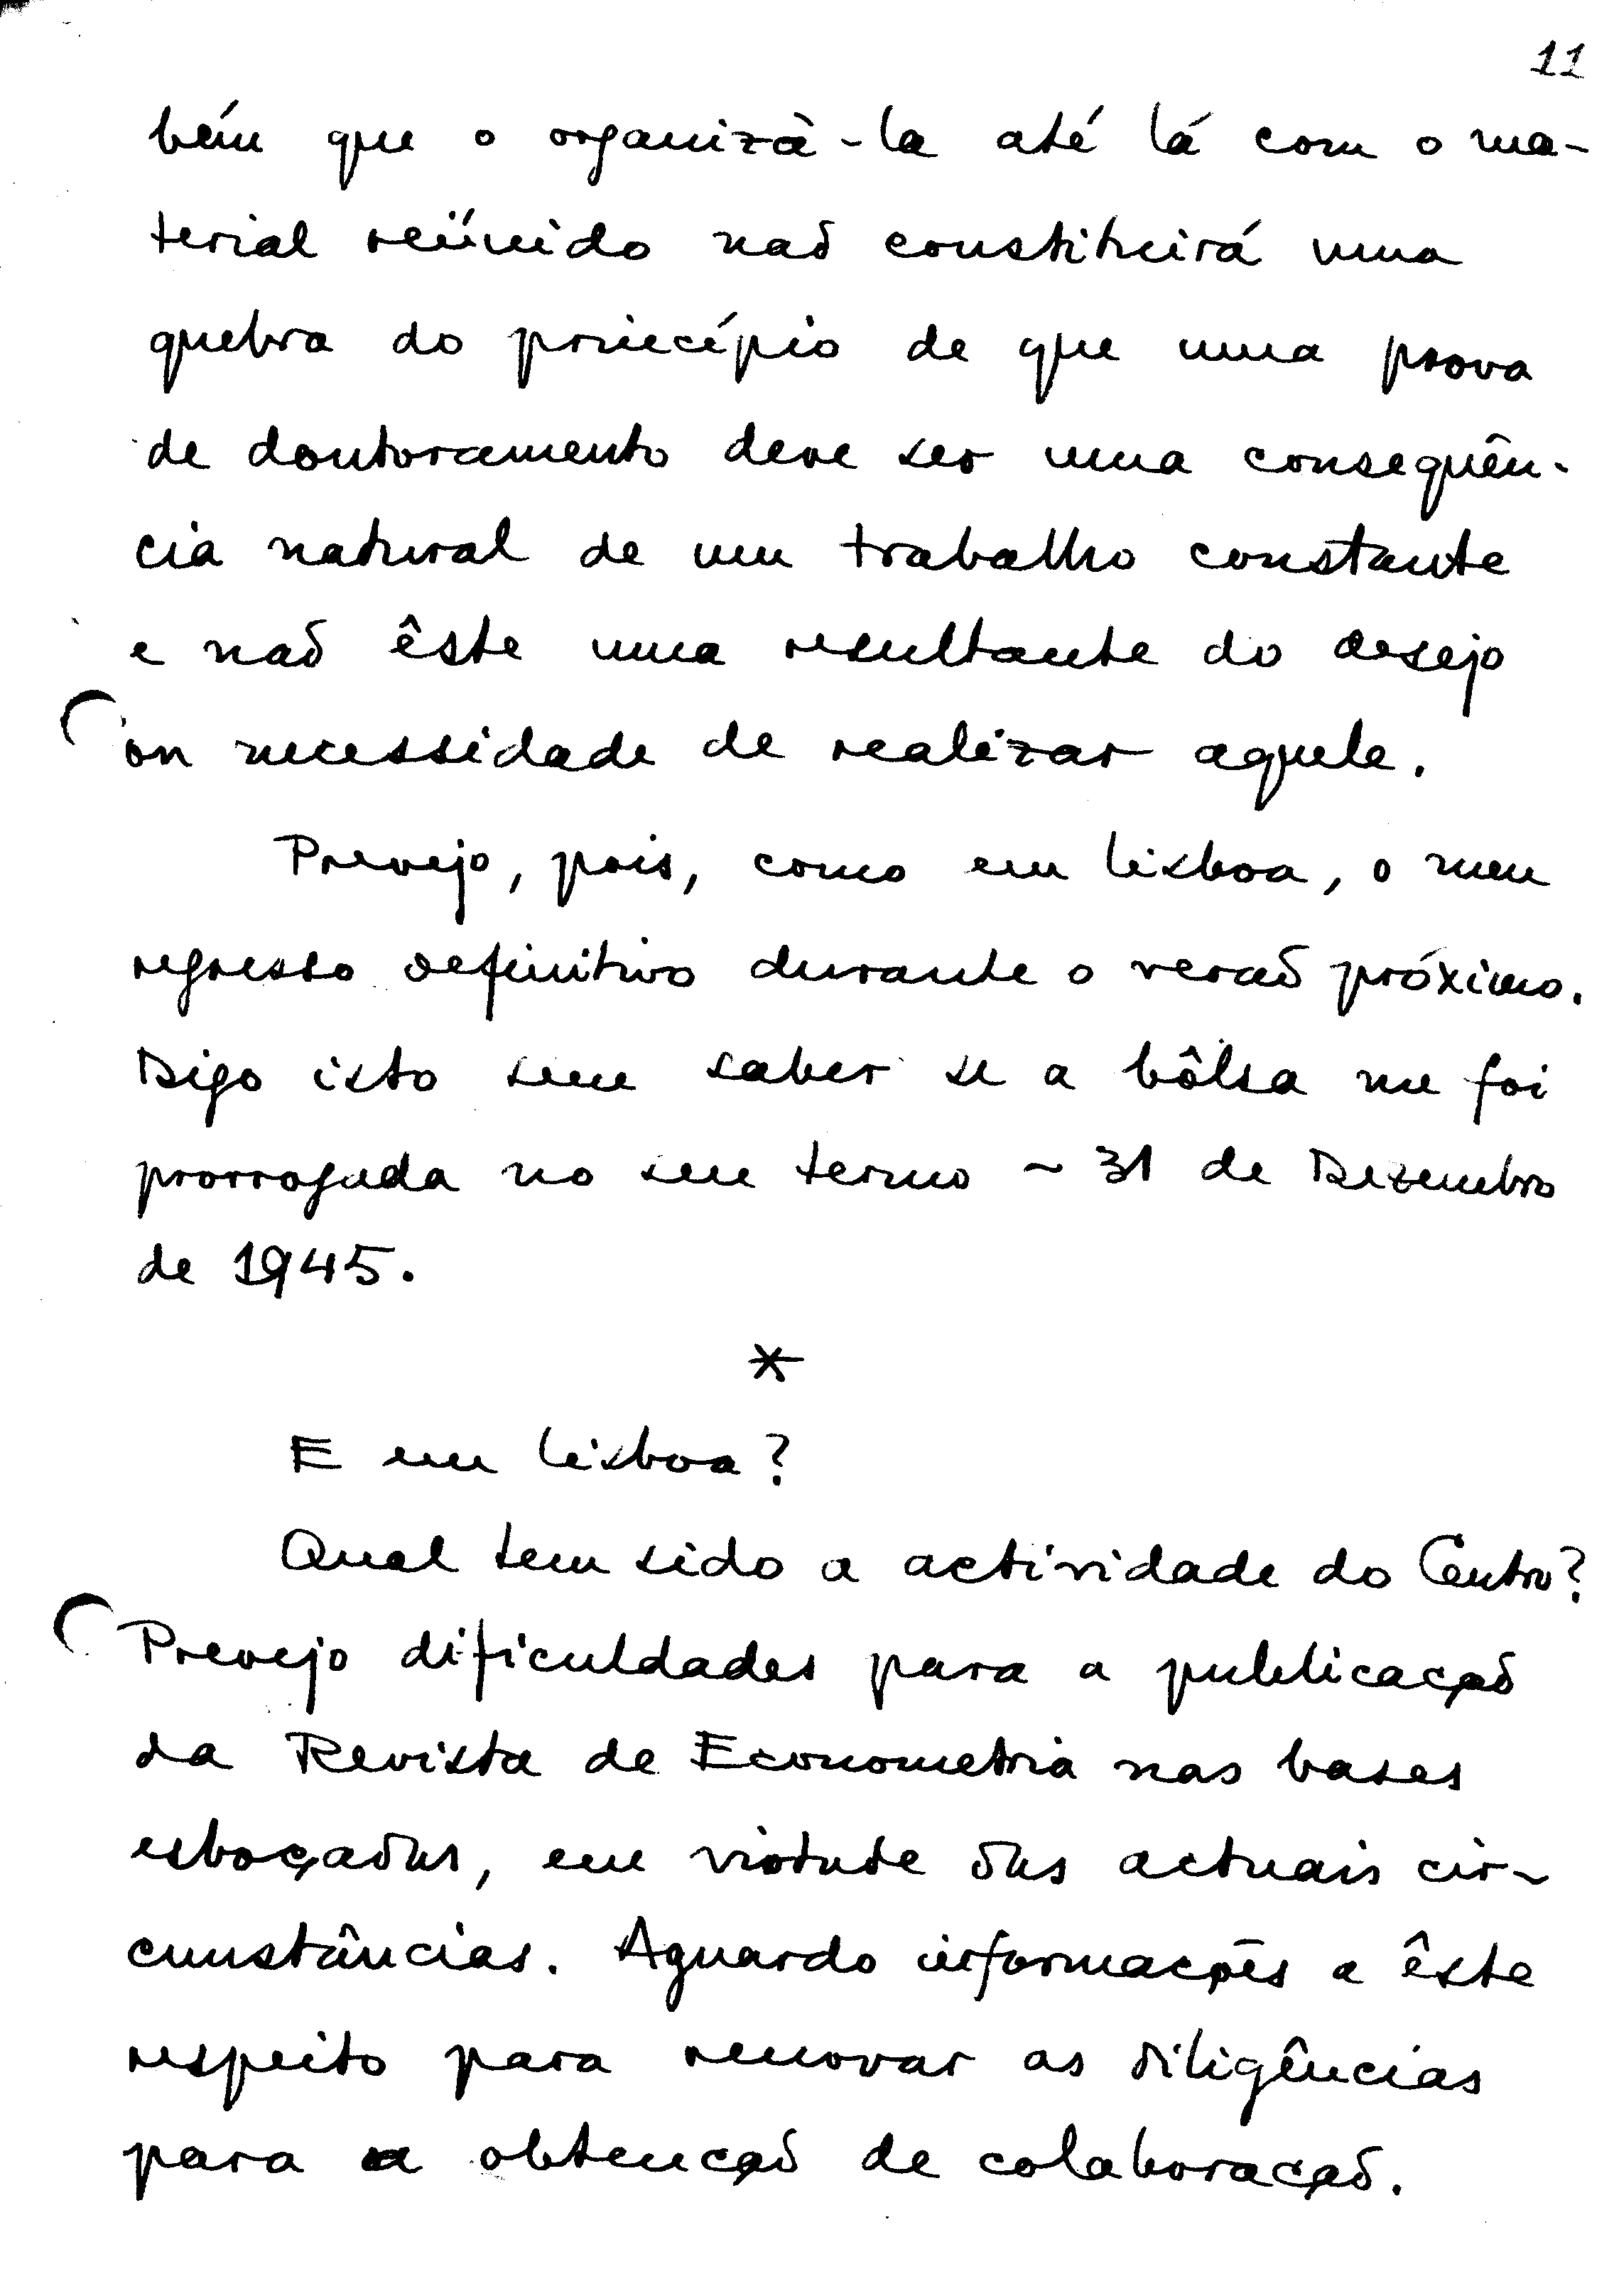 11
bém que o organizà-la até lá com o ma-
terial reünido não constituirá uma
quebra do princípio de que uma prova
de doutoramento deve ser uma consequên-
cia natural de um trabalho constante
e não êste uma resultante do desejo
ou necessidade de realizar aquele.
Prevejo, pois, como em Lisboa, o meu
regresso definitivo durante o verão próximo.
Digo isto sem saber se a bôlsa me foi
prorrogada no seu termo - 31 de Dezembro
de 1945.
*
E em Lisboa?
Qual tem sido a actividade do Centro?
Prevejo dificuldades para a publicação
da Revista de Econometria nas bases
esboçadas, em virtude das actuais cir-
cunstâncias. Aguardo informações a êste
respeito para renovar as diligências
para a obtenção de colaboração.